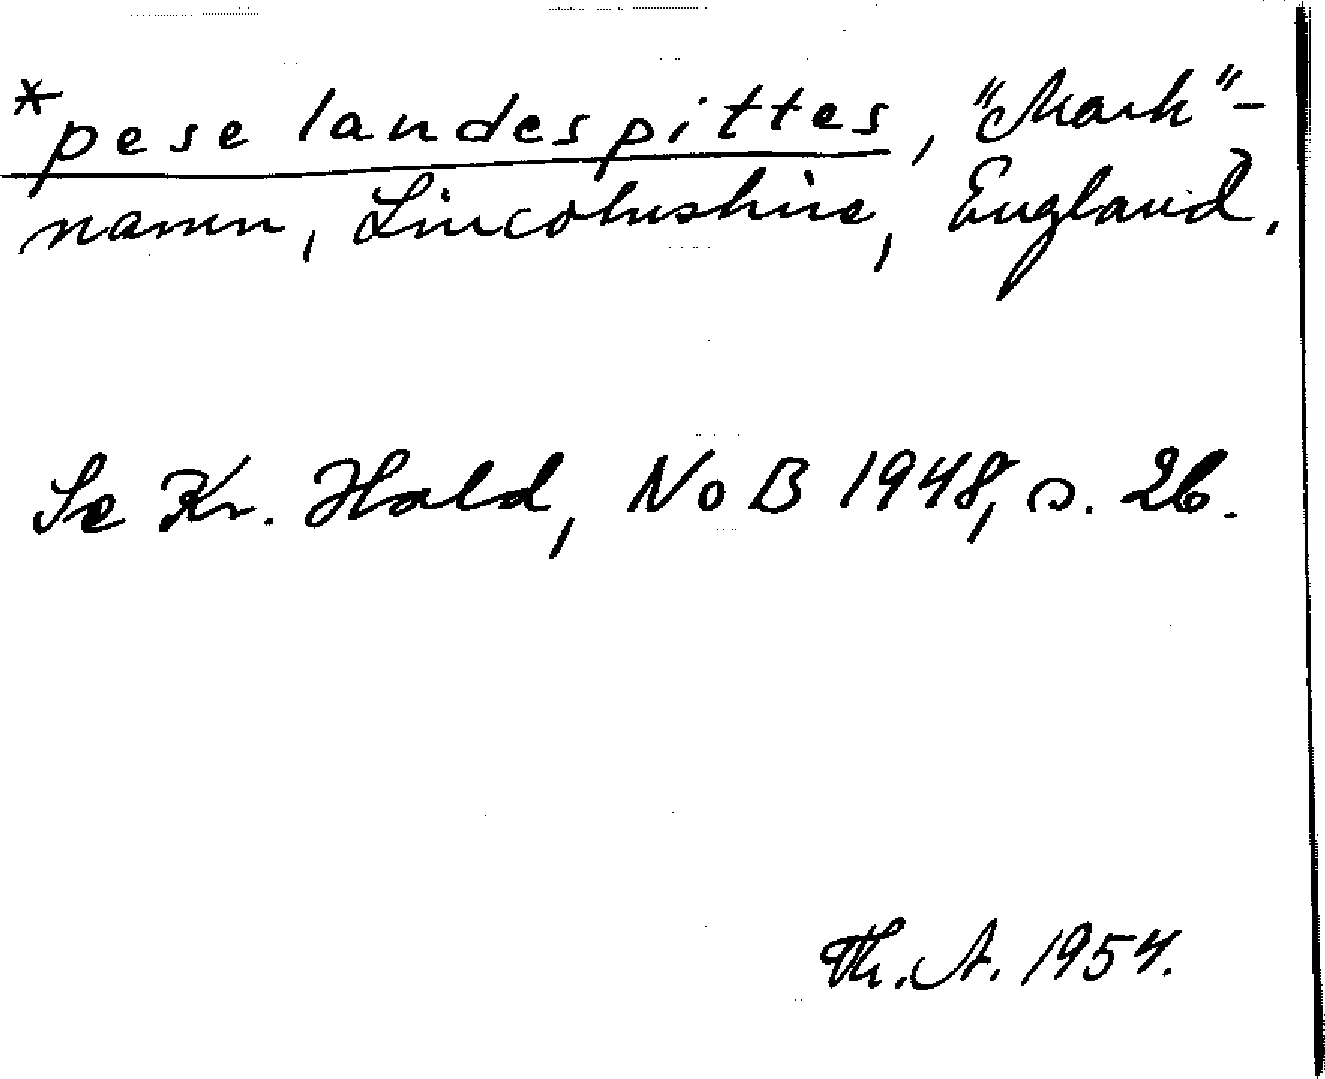 *pese landespittes, "Mark"-
namn, Lincolnshire, England.
Se Kr. Hald, NoB 1948, s. 26.
Th. A. 1954.